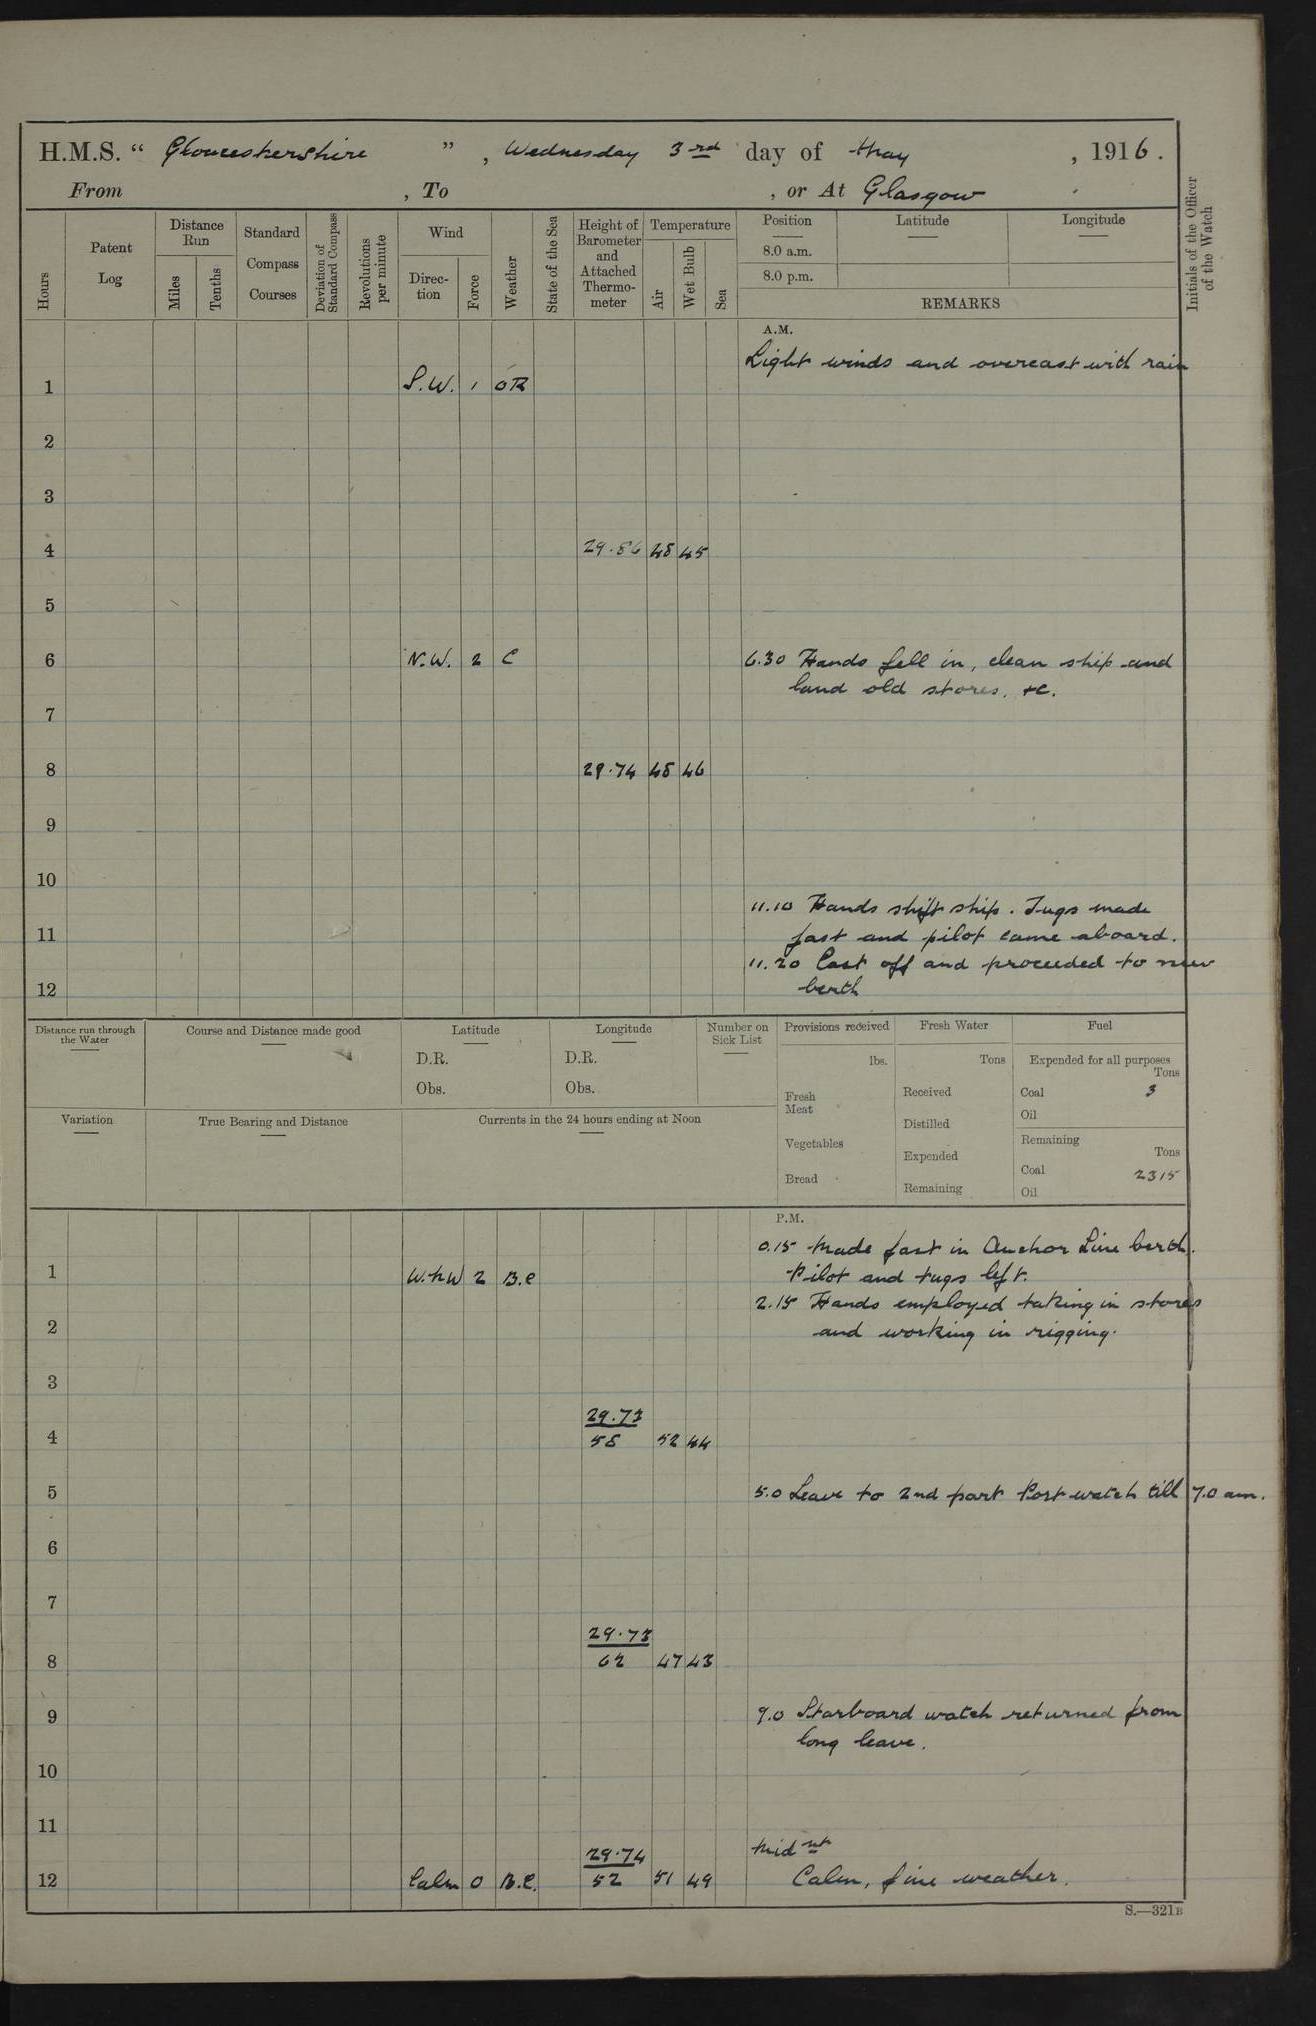 H.M.S. “ Gloucestershire ” , Wednesday 3rd day of May , 1916 .
From , To , or At Glasgow
Hours
Patent Log
Distance Run
Miles
Tenths
Standard Compass Courses
Deviation of Standard Compass
Revolutions per minute
Wind
Direc-tion
Force
Weather
State of the Sea
Height of Barometer and Attached Thermo-meter
Temperature
Air
Wet Bulb
Sea
Position
8.0 a.m.
8.0 p.m.
Latitude
Longitude
REMARKS
Initials of the Officer of the Watch
A.M.
Light winds and overcast with rain
1 S.W. 1 OR
2
3
4 29.86 48 45
5
6 N.W. 2 C 6.30 Hands fell in, clean ship and
land old stores, &c.
7
8 29.74 48 46
9
10
11.10 Hands shift ship. Tugs made
11 fast and pilot came aboard.
11.20 Cast off and proceeded to new
12 berth
Distance run through the Water
Course and Distance made good
Latitude
D.R.
Obs.
Longitude
D.R.
Obs.
Number on Sick List
Provisions received
lbs.
Fresh Meat
Vegetables
Bread
Fresh Water
Tons
Received
Distilled
Expended
Remaining
Fuel
Expended for all purposes
Tons
Coal 3
Oil
Remaining
Tons
Coal 2315
Oil
Variation
True Bearing and Distance
Currents in the 24 hours ending at Noon
P.M.
0.15 Made fast in Anchor Line berth.
1 W.N.W 2 B.C Pilot and tugs left.
2.15 Hands employed taking in stores
2 and working in rigging.
3
29.73
4 58 52 44
5 5.0 Leave to 2nd part Port watch till 7.0 am.
6
7
29.73
8 62 47 43
9 9.0 Starboard watch returned from
long leave.
10
11
29.74 Midnt
12 Calm 0 B.C. 52 51 49 Calm, fine weather.
S.—321B